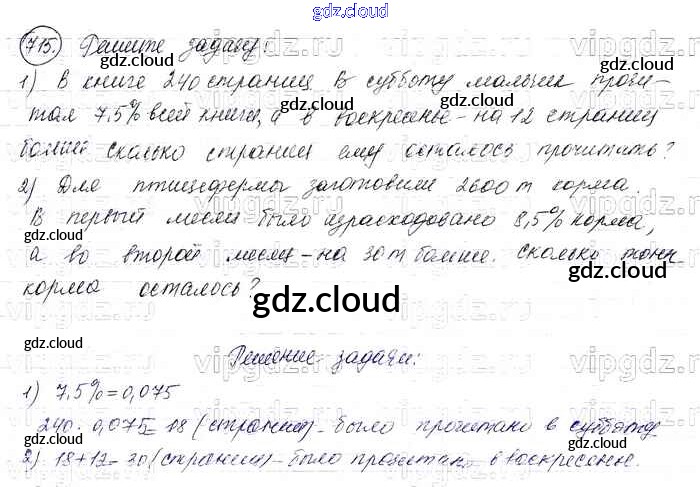 gdz.cloud
gdz.cloud
715. Решите задачу:
1) В книге 240 страниц. В субботу мальчик прочи-
тал 7,5% всей книги, а в воскресенье - на 12 страниц
больше. Сколько страниц ему осталось прочитать?
2) Для птицефермы заготовили 2600 т корма.
В первый месяц было израсходовано 8,5% корма,
gdz.cloud
gdz.cloud
а во второй месяц - на 30 т больше. Сколько тонн
gdz.cloud
корма осталось?
gdz.cloud
gdz.cloud
gdz.cloud
Решение задачи:
1) 7,5% = 0,075
240 · 0,075 = 18 (страниц) - было прочитано в субботу
gdz.cloud
gdz.cloud
2) 18+12 = 30 (страниц) - было прочитано в воскресенье.
vipgdz.ru